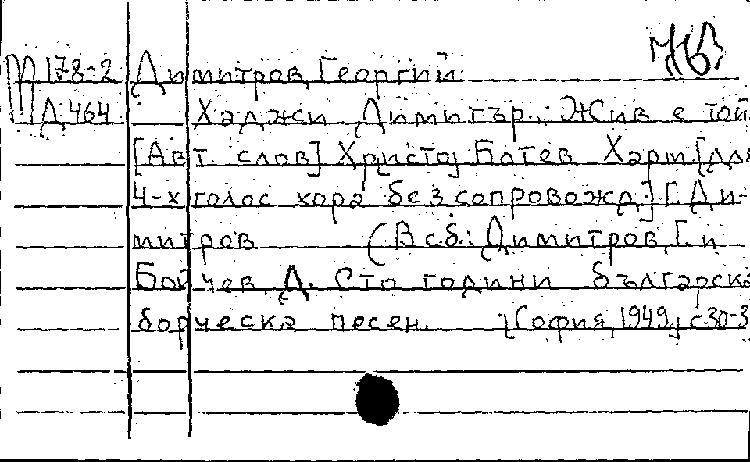 М 178-2 Димитров, Георгий
Д 464 Хаджи Димитър.; Жив е той
[Авт. слов] Христо Ботев Харм. [для
4-х голос хора без сопровожд.] Г. Ди-
митров (В сб.: Димитров, Г. и
Бойчев, Д. Сто години българска
борческа песен. София, 1949, с 30-3